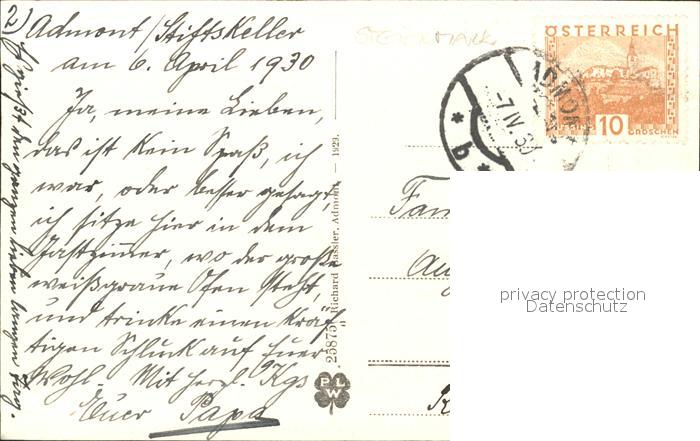 2) Admont/Stiftskeller
am 6. April 1930
Ja, meine Lieben,
das ist kein Spaß, ich
war, oder besser gesagt,
ich sitze hier in dem
Gastzimmer, wo der große
weißgraue Ofen steht,
und trinke einen kräf-
tigen Schluck auf Euer
Wohl. Mit herzl. Kgs
Euer Papa
den ganzen lieben langen Tag.
25875 Richard Kassler, Admont — 1929.
P L W
STEIERMARK
ÖSTERREICH
10 GROSCHEN
ADMONT
-7.IV.30
* b *
Fam
privacy protection
Datenschutz